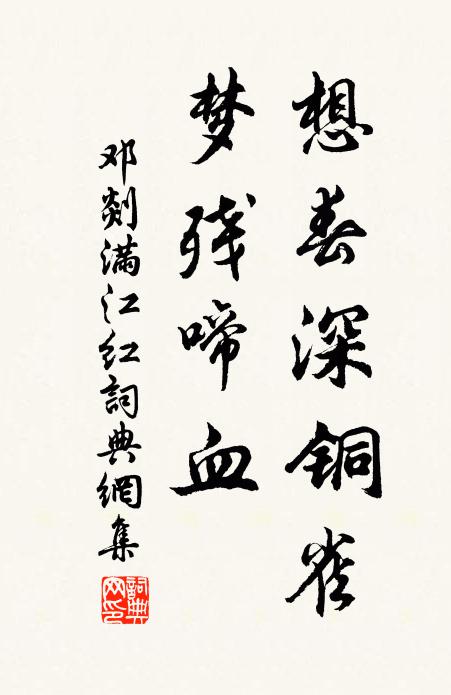 想春深铜雀
梦残啼血
邓剡满江红詞典網集
詞典网印